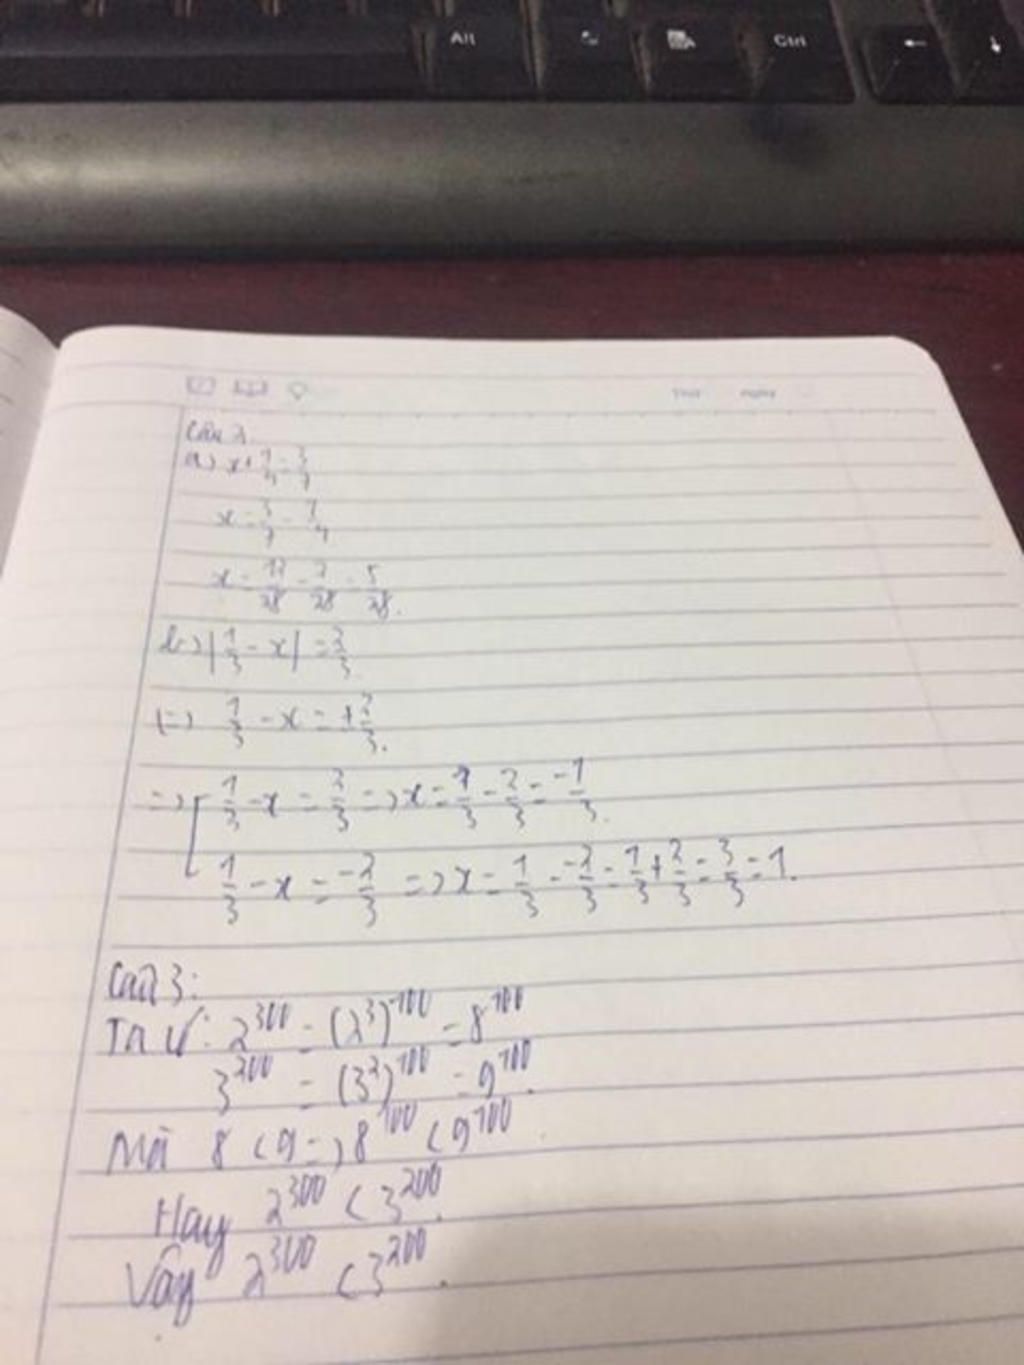 Alt
Ctrl
Thứ ngày
Câu 2.
a) x + 1/4 = 3/7
x = 3/7 - 1/4
x = 12/28 - 7/28 = 5/28.
b) |1/3 - x| = 2/3
(=) 1/3 - x = ±2/3.
=> [ 1/3 - x = 2/3 => x = 1/3 - 2/3 = -1/3.
1/3 - x = -2/3 => x = 1/3 - -2/3 = 1/3 + 2/3 = 3/3 = 1.
Câu 3:
Ta có: 2^300 = (2^3)^100 = 8^100
3^200 = (3^2)^100 = 9^100.
Mà 8 < 9 => 8^100 < 9^100.
Hay 2^300 < 3^200.
Vậy 2^300 < 3^200.